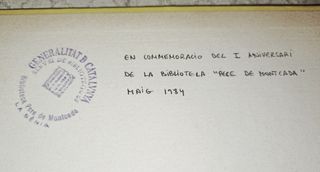 GENERALITAT D CATALUNYA
Biblioteca Pere de Montcada
LA SÉNIA
EN COMMEMORACIO DEL I ANIVERSARI
DE LA BIBLIOTECA "PERE DE MONTCADA"
MAIG 1984